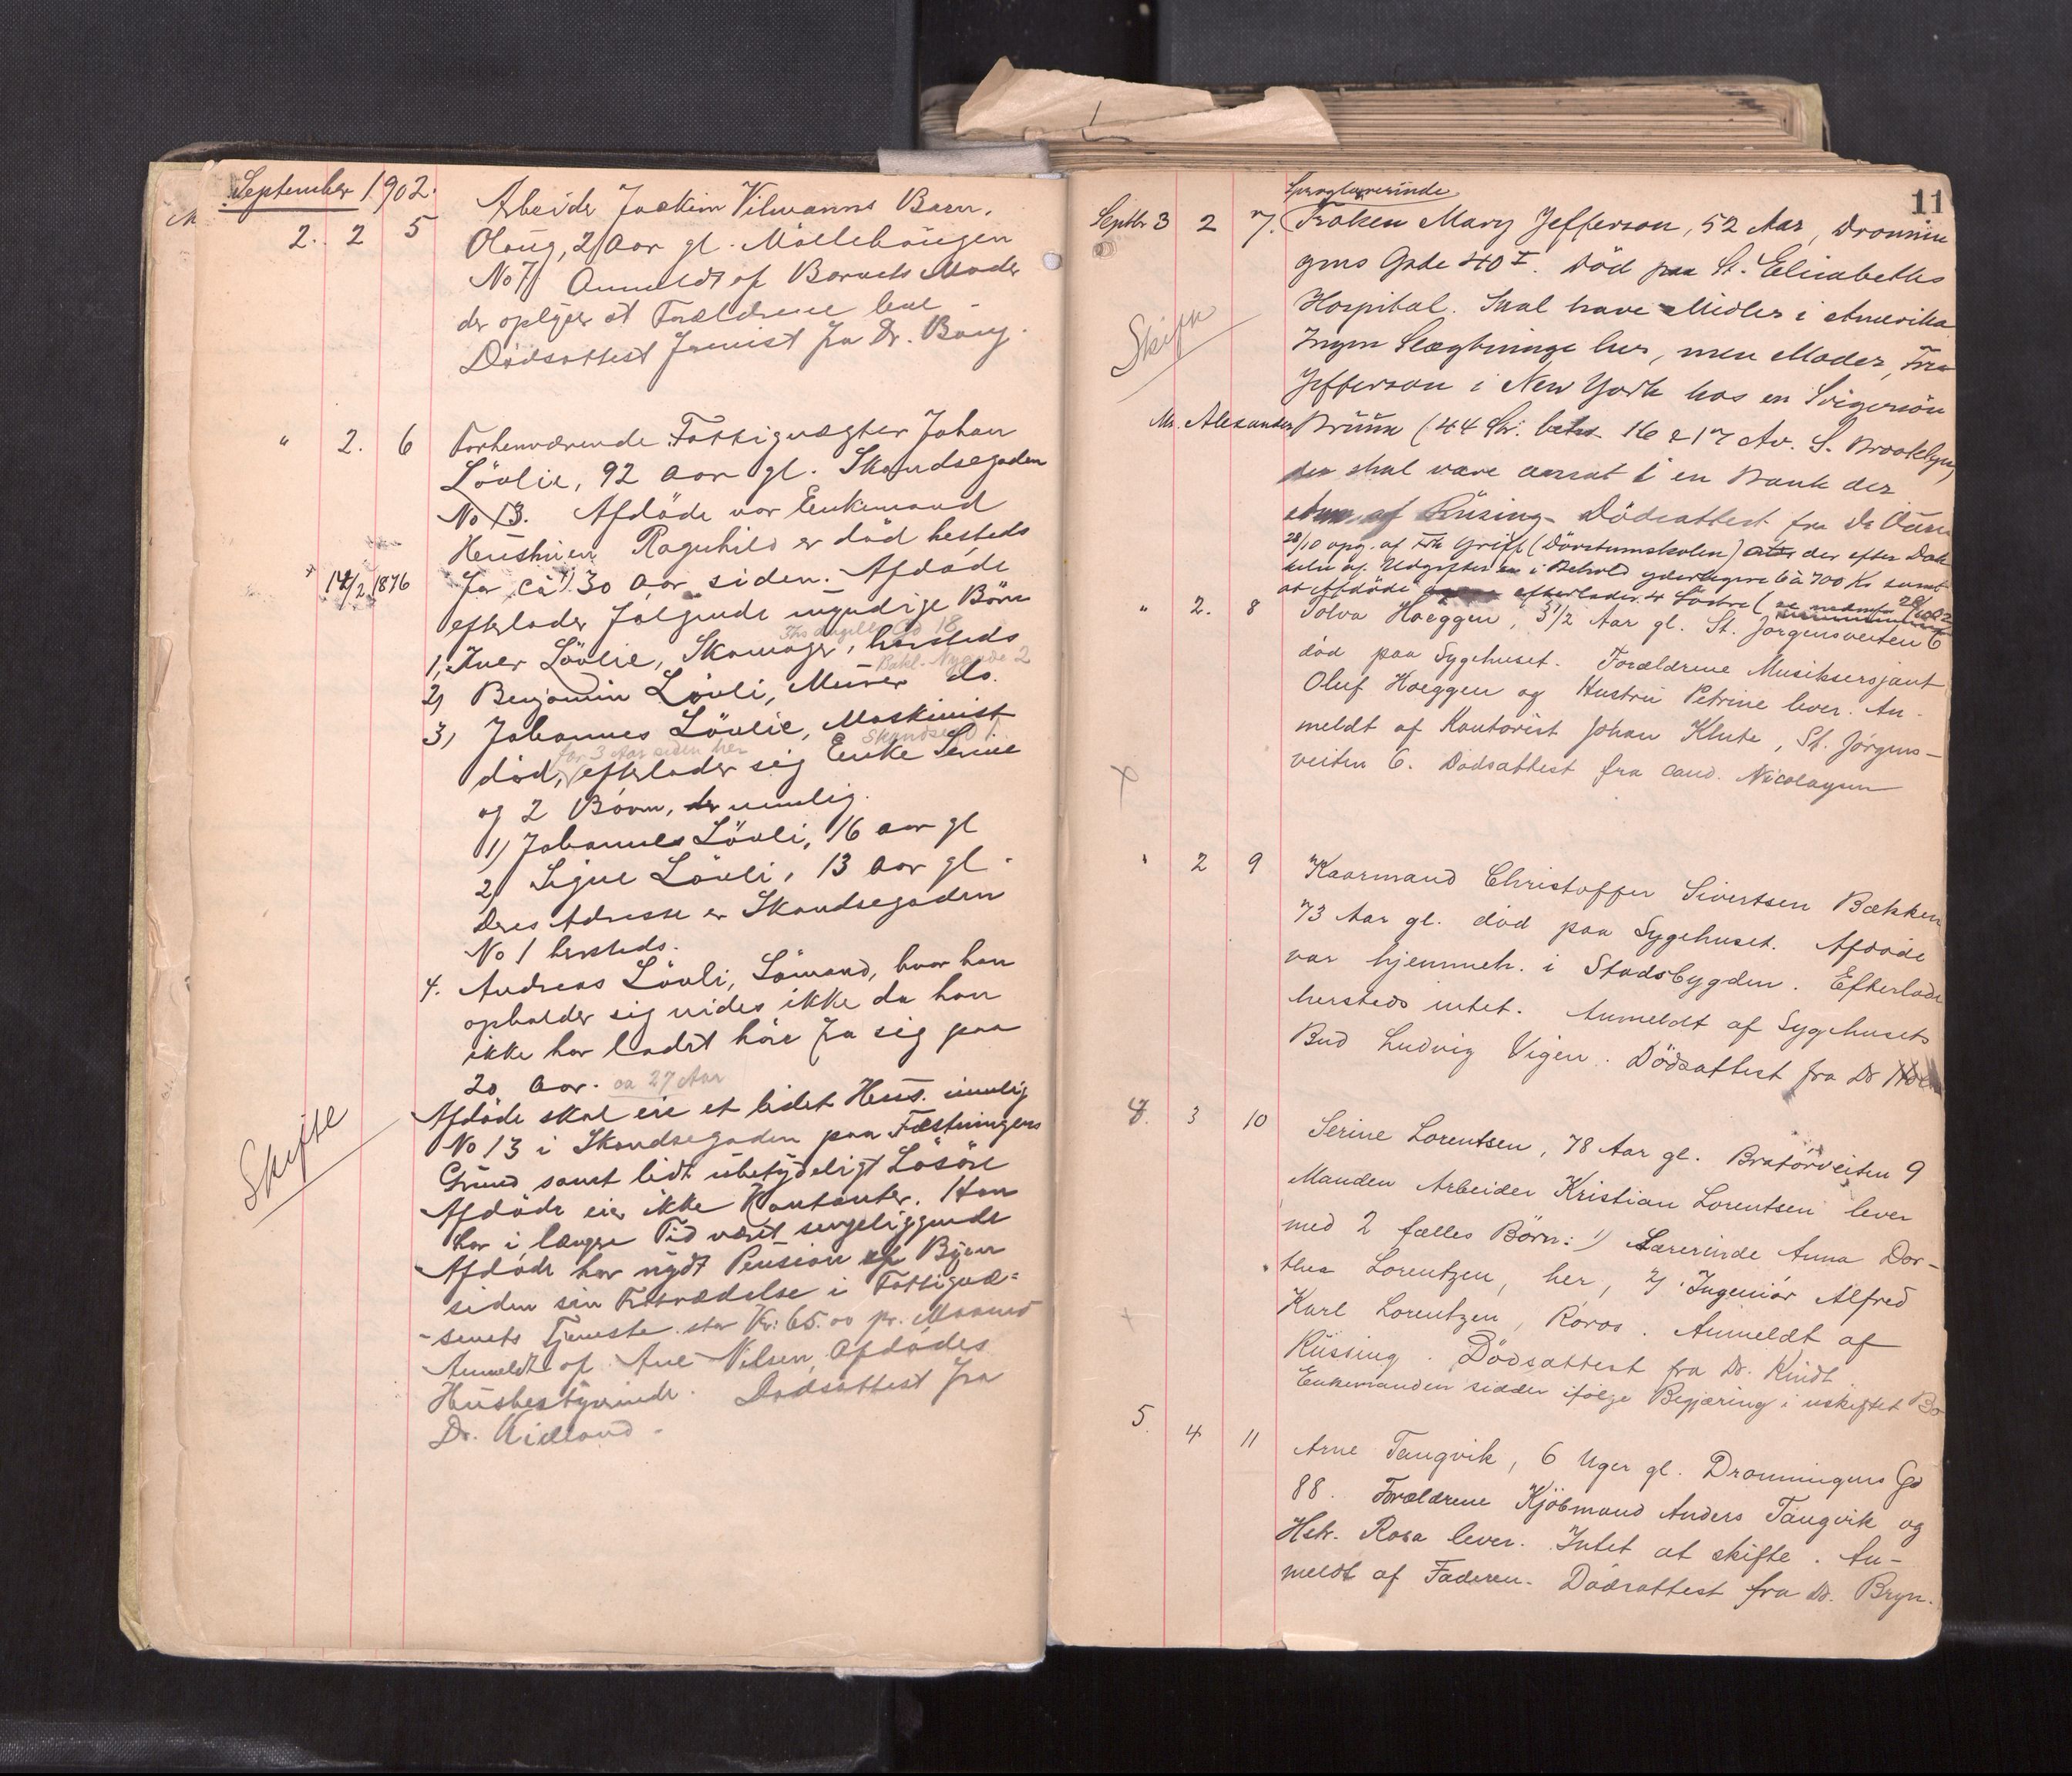 September 1902.
2. 2 5 Arbeider Joakim Vilmanns Barn,
Olaug, 2 Aar gl. Møllebaugen
No 7. Anmeldt af Barnets Moder
der oplyser at Forældrene lever
Dødsattest fra Dr.
" 2. 6 Forhenværende Fattigvægter Johan
Løvlie, 92 Aar gl. Skandsegaden
No 13. Afdøde var Enkemand
Hustruen Ragnhild er død hersteds
14/2 1876
for ca 30 Aar siden. Afdøde
efterlader følgende myndige Børn
Ths Angells Gd 18
1, Iver Løvlie, Skomager, hersteds
Bakl. Nygade 2
2, Benjamin Løvli, Murer do.
3, Johannes Løvlie, Maskinist
for 3 Aar siden her
Skandsegd 1.
død, efterlader sig Enke Serine
og 2 Børn, nemlig
1) Johannes Løvli, 16 Aar gl
2) Signe Løvli, 13 Aar gl.
Deres Adresse er Skandsegaden
No 1 hersteds.
4. Andreas Løvli, Sømand, hvor han
opholder sig vides ikke da han
ikke har ladet høre fra sig paa
20 Aar. ca 27 Aar
Skifte
Afdøde skal eie et lidet Hus. nemlig
No 13 i Skandsegaden paa Fæstningens
Grund samt lidt ubetydeligt Løsøre
Afdøde eier ikke Kontanter. Han
har i længre Tid været sengeliggende
Afdøde har nydt Pension af Byen
siden sin Fratrædelse i Fattigvæ=
-senets Tjeneste. stor Kr: 65.00 pr. Maaned
Anmeldt af Ane Nilsen, Afdødes
Husbestyrerinde. Dødsattest fra
Dr. Kielland.
11
Sproglærerinde
Septbr 3 2 7. Frøken Mary Jefferson, 52 Aar, Dronnin
gens Gade 40 I. Død paa St. Elisabeths
Hospital. Skal have Midler i Amerika
Skifte
Ingen Slægtninge her, men Moder, Fru
Jefferson i New York hos en Svigersøn
Mr. Alexander Bruun (44 Str. 16 & 17 Av. S. Brooklyn,
der skal være ansat i en Bank der
Anm. af Rüsing. Dødsattest fra Dr
28/10 opg. af Frk Griff (Dövstumskolen) der efter
af Udgifter i Behold yderligere 6 à 700 Kr samt
at Afdøde efterlader 4 Søstre (se nedenfor 28/10 02
" 2. 8 Tolva Hoeggen, 3 1/2 Aar gl. St. Jørgensveiten 6
død paa Sygehuset. Forældrene Musiksersjant
Oluf Hoeggen og Hustru Petrine lever. An-
meldt af Kontorist Johan Klute, St. Jørgens-
veiten 6. Dødsattest fra cand. Nicolaysen
" 2 9 Kaarmand Christoffer Sivertsen Bækken
73 Aar gl. død paa Sygehuset. Afdøde
var hjemmeh. i Stadsbygden. Efterlader
hersteds intet. Anmeldt af Sygehusets
Bud Ludvig Vigen. Dødsattest fra Dr
4. 3 10 Serine Lorentsen, 78 Aar gl. Bratørveiten 9
Manden Arbeider Kristian Lorentsen lever
med 2 fælles Børn: 1) Lærerinde Anna Dor-
thea Lorentzen, her, 2) Ingeniør Alfred
Karl Lorentzen, Røros. Anmeldt af
Rüssing. Dødsattest fra Dr. Kindt.
Enkemanden sidder ifølge Begjæring i uskiftet Bo
5. 4 11 Arne Tangvik, 6 Uger gl. Dronningens Gd
88. Forældrene Kjøbmand Anders Tangvik og
Hstr. Rosa lever. Intet at skifte. An-
meldt af Faderen. Dødsattest fra Dr. Bryn.